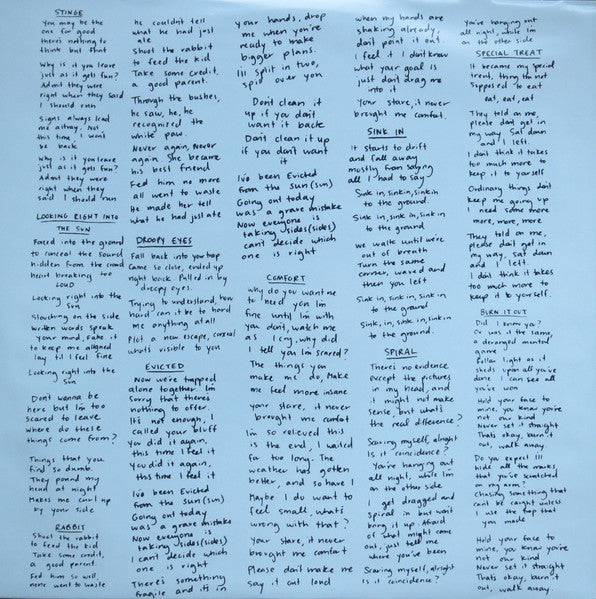 STINGE
You may be the
one for good
there's nothing to
think but that
Why is it you leave
just as it gets fun?
Admit they were
right when they said
I should run
Signs always lead
me astray, Not
this time I won't
be back
Why is it you leave
just as it gets fun?
Admit they were
right when they
said I should run
LOOKING RIGHT INTO
THE SUN
Forced into the ground
to conceal the sound
hidden from the crowd
heart breaking too
LOUD
Looking right into the
sun
Slouching on the side
written words speak
Your mind, Fake it
to keep me aligned
lay til I feel fine
Looking right into the
Sun
Dont wanna be
here but Im too
scared to leave
where do these
things come from?
Things that you
find so dumb.
They pound my
head at night
Makes me curl up
by your side
RABBIT
Shoot the rabbit
to feed the kid
Take some credit,
a good parent.
Fed him so well
none went to waste
he couldn't tell
what he had just
ate
Shoot the rabbit
to feed the kid
Take some credit,
a good parent.
Through the bushes,
he saw, he, he
recognized the
white paw.
Never again, Never
again She became
his best friend
Fed him no more
all went to waste
He made her tell
what he had just ate
DROOPY EYES
Fall back into your trap
Came so close, ended up
right back Pulled in by
droopy eyes.
Trying to understand, how
hard can it be to hard
me anything at all
Plot a new escape, conceal
what's visible to you
EVICTED
Now we're tapped
alone together. Im
Sorry that there's
nothing to offer.
It's not enough, I
called your bluff
You did it again,
this time I feel it
You did it again,
this time I feel it
Ive been Evicted
from the sun (sun)
Going out today
was a grave mistake
Now everyone is
taking sides (sides)
I can't decide which
one is right
There's something
fragile and its in
your hands, drop
me when you're
ready to make
bigger plans.
Ill split in two,
spill over you
Don't clean it
up if you don't
want it back
Don't clean it up
if you don't want
it
Ive been Evicted
from the sun (sun)
Going out today
was a grave mistake
Now everyone is
taking sides (sides)
can't decide which
one is right
COMFORT
Why do you want me
to need you Im
fine until Im with
you don't, watch me
as I cry, why did
I tell you Im scared?
The things you
make me do, Make
me feel more insane
your stare, it never
brought me comfort
Im so relieved this
is the end, I waited
far too long. The
weather has gotten
better, and so have I
Maybe I do want to
feel small, whats
wrong with that?
Your stare, it never
brought me comfort
Please dont make me
say it out loud
when my hands are
shaking already,
dont point it out
I feel it I dont know
what your goal is
just dont drag me
into it
Your stare, it never
brought me comfort.
SINK IN
It starts to drift
and fall away
mostly from saying
all I had to say
Sink in, sink in, sink in
to the ground.
Sink in, sink in, sink in
to the ground
we walk until we're
out of breath
Turn the same
corner, waved and
then you left
Sink in, sink in, sink in
to the ground
Sink, in, sink in, sink in
to the ground.
SPIRAL
There's no evidence
except the pictures
in my head, and
it might not make
sense, but whats
the real difference?
Scaring myself, alright
Is it coincidence?
You're hanging out
all night, while Im
on the other side
I get dragged and
spiral in but wont
bring it up. Afraid
of what might come
out, just tell me
where you've been
Scaring myself, alright
Is it coincidence?
you're hanging out
all night, while Im
on the other side
SPECIAL TREAT
It became my special
treat, thing Im not
supposed to eat
eat, eat, eat
They told on me,
please don't get in
my way, Sat down
and I left.
I dont think it takes
too much more to
keep it to yourself
Ordinary things dont
keep me going up
I need some more
more, more, more
They told on me,
please dont get in
my way, sat down
and I left.
I dont think it takes
too much more to
keep it to yourself.
BURN IT OUT
Did I know ya?
Or was it the same,
a deranged mental
game
Pollar light as it
sheds upon all you've
done I can see all
you've won
Hold your face to
mine, you know you're
not our kind
Never set it straight
Thats okay, burn it
out, walk away.
Do you expect Ill
hide all the marks,
that you've scratched
on my arm?
Chasing something that
can't be caught unless
I use the trap that
you made
Hold your face to
mine, you know you're
not our kind
Never set it straight
Thats okay, burn it
out, walk away.